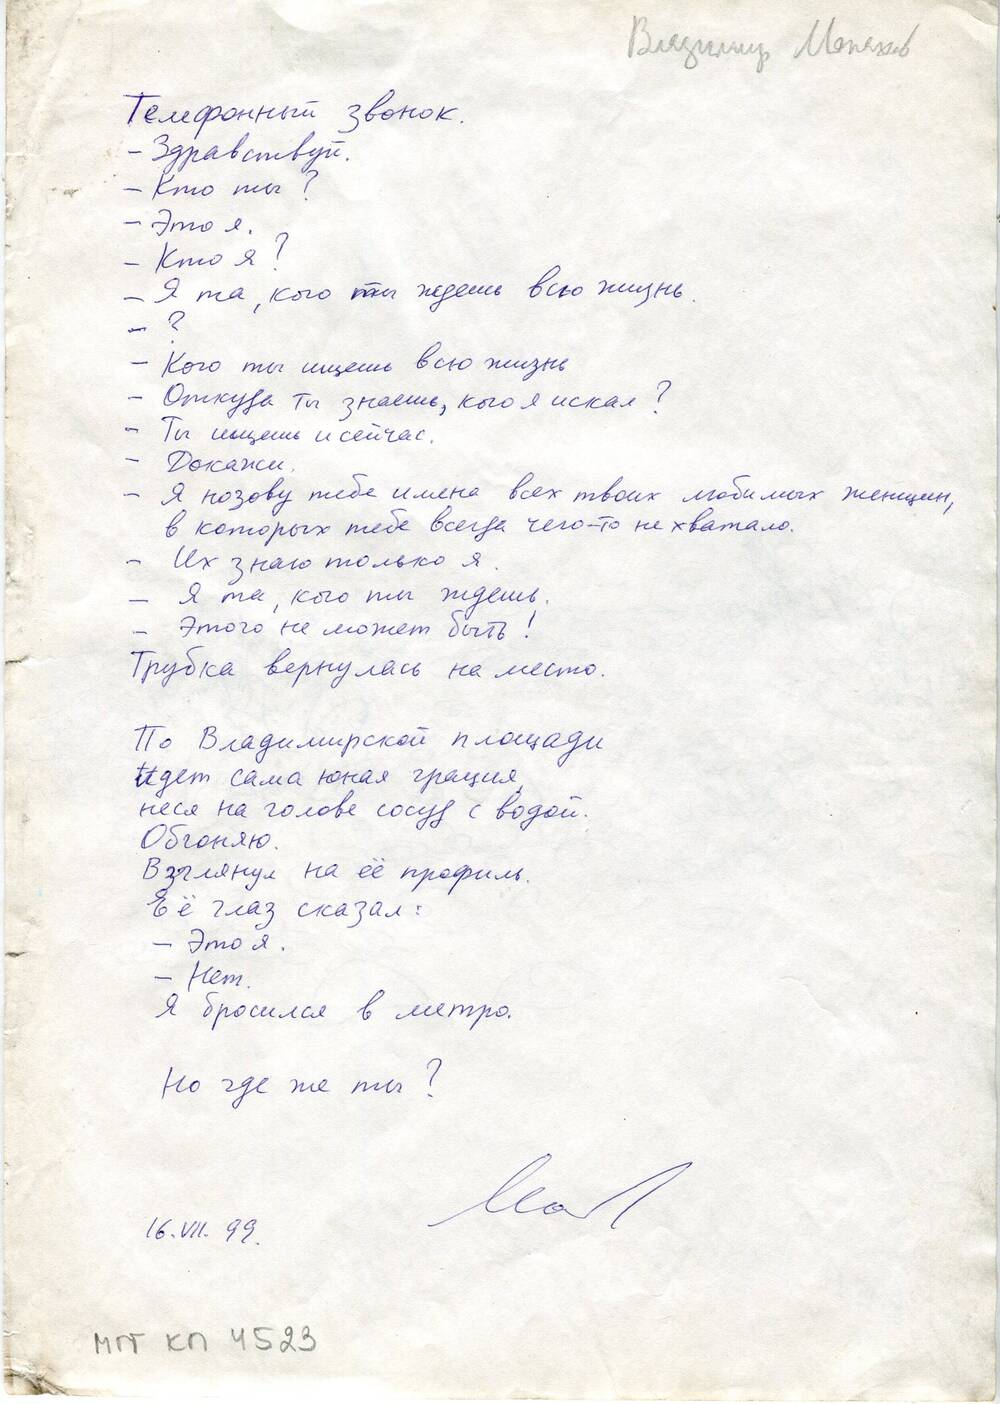 Владимир
Телефонный звонок.
– Здравствуй.
– Кто ты?
– Это я.
– Кто я?
– Я та, кого ты ждешь всю жизнь.
– ?
– Кого ты ищешь всю жизнь
– Откуда ты знаешь, кого я искал?
– Ты ищешь и сейчас.
– Докажи.
– Я назову тебе имена всех твоих любимых женщин,
в которых тебе всегда чего-то не хватало.
– Их знаю только я.
– Я та, кого ты ждешь.
– Этого не может быть!
Трубка вернулась на место.
По Владимирской площади
идет сама юная грация,
неся на голове сосуд с водой.
Обгоняю.
Взглянул на её профиль.
Её глаз сказал:
– Это я.
– Нет.
Я бросился в метро.
Но где же ты?
16.VII.99.
МПТ КП 4523